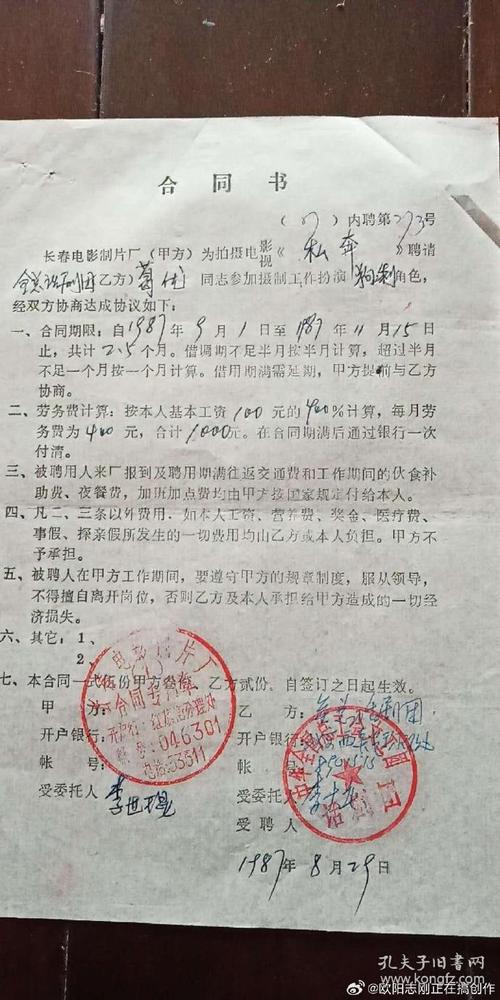 合同书
(87)内聘第273号
长春电影制片厂(甲方)为拍摄电影视《私奔》聘请
全总话剧团(乙方)葛优 同志参加摄制工作扮演 角色,
经双方协商达成协议如下:
一、合同期限:自1987年9月1日至1987年11月15日
止,共计2.5个月。借调期不足半月按半月计算,超过半月
不足一个月按一个月计算。借用期满需延期,甲方提前与乙方
协商。
二、劳务费计算:按本人基本工资100元的400%计算,每月劳
务费为400元,合计1000元。在合同期满后通过银行一次
付清。
三、被聘用人来厂报到及聘用期满往返交通费和工作期间的伙食补
助费、夜餐费,加班加点费均由甲方按国家规定付给本人。
四、凡二、三条以外费用,如本人工资、营养费、奖金、医疗费、
事假、探亲假所发生的一切费用均由乙方或本人负担。甲方不
予承担。
五、被聘人在甲方工作期间,要遵守甲方的规章制度,服从领导,
不得擅自离开岗位,否则乙方及本人承担给甲方造成的一切经
济损失。
六、其它:1、
2、
七、本合同一式伍份甲方叁份,乙方贰份,自签订之日起生效。
甲方:
开户银行:
帐号:
受委托人
乙方:全总话剧团
开户银行:
帐号:
受委托人
受聘人
春电影制片厂
合同专用章
开户行:红旗街办理处
帐号:046301
电话:53311
中华全国总工会
话剧团
1987年8月29日
孔夫子旧书网
www.kongfz.com
@欧阳志刚正在搞创作